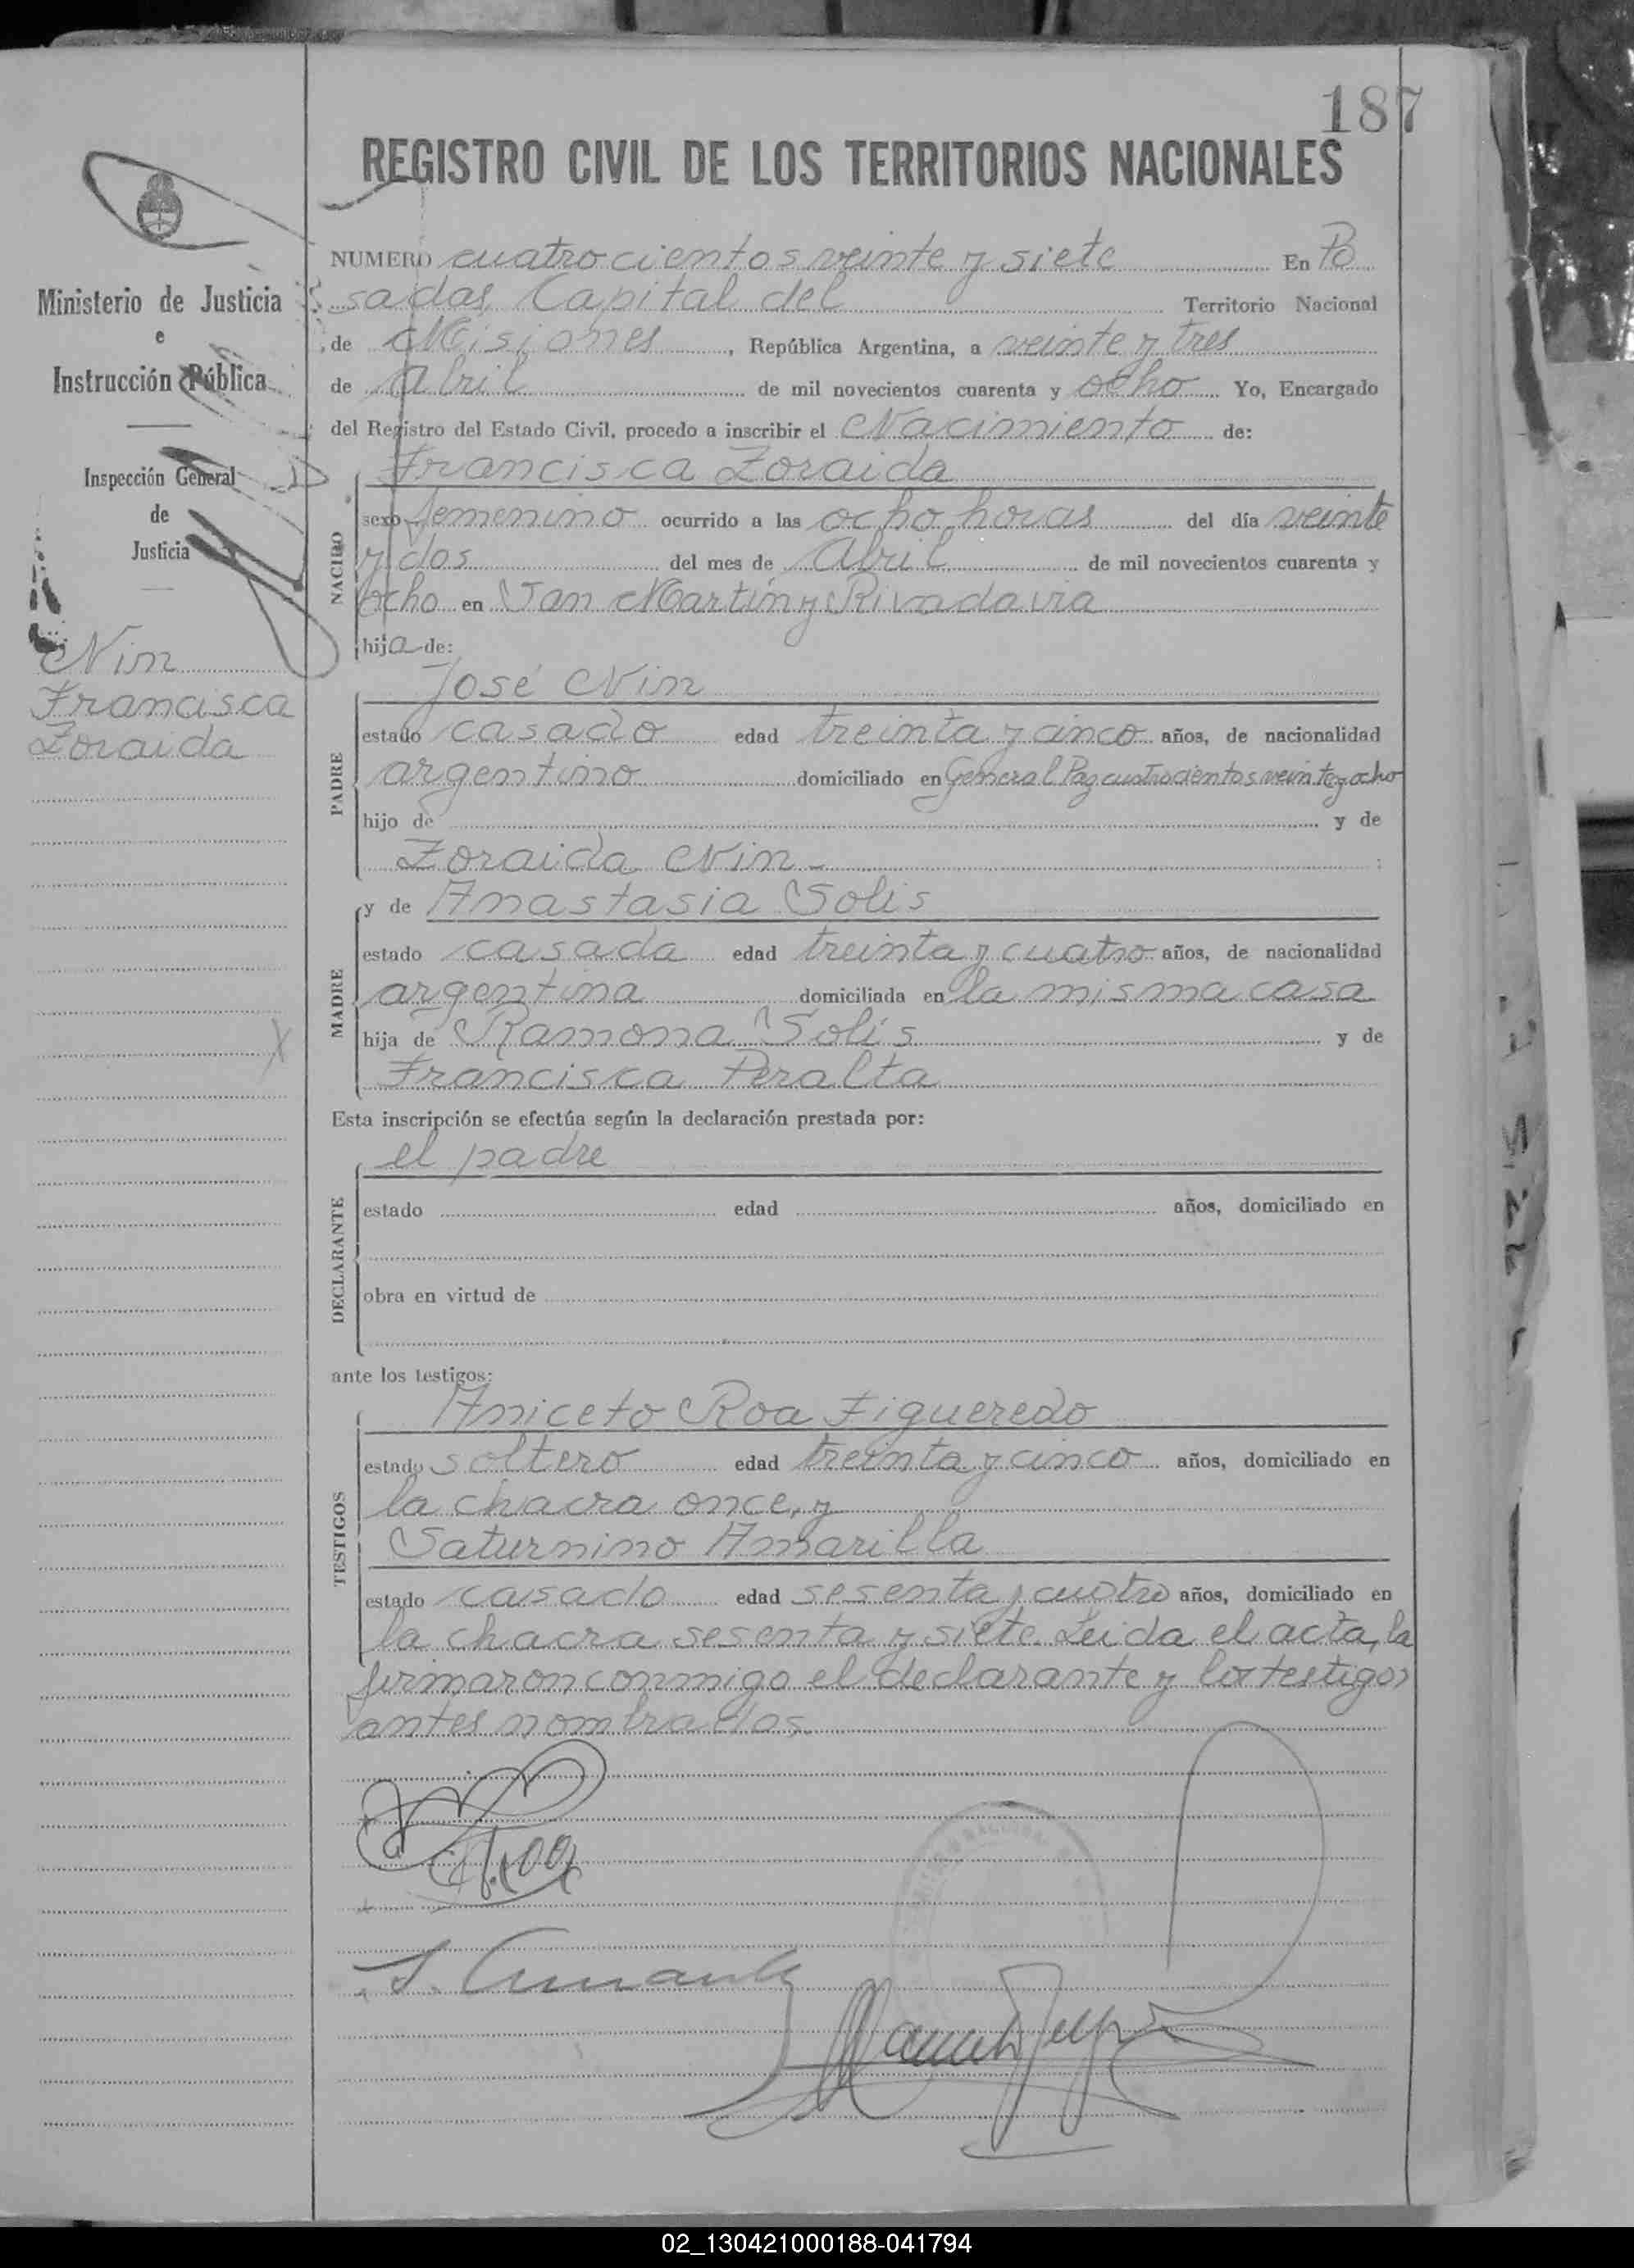 187
REGISTRO CIVIL DE LOS TERRITORIOS NACIONALES
Ministerio de Justicia
e
Instrucción Pública
Inspección General
de
Justicia
Nin
Francisca
Zoraida
NUMERO cuatrocientos veinte y siete En Po
sadas, Capital del Territorio Nacional
de Misiones, República Argentina, a veinte y tres
de Abril de mil novecientos cuarenta y ocho Yo, Encargado
del Registro del Estado Civil, procedo a inscribir el Nacimiento de:
NACIDO
Francisca Zoraida
sexo femenino ocurrido a las ocho horas del día veinte
y dos del mes de Abril de mil novecientos cuarenta y
ocho en San Martín y Rivadavia
hija de:
PADRE
José Nin
estado casado edad treinta y cinco años, de nacionalidad
argentino domiciliado en General Paz cuatrocientos veinte y ocho
hijo de y de
Zoraida Nin ;
MADRE
y de Anastasia Solis
estado casada edad treinta y cuatro años, de nacionalidad
argentina domiciliada en la misma casa
hija de Ramona Solís y de
Francisca Peralta
Esta inscripción se efectúa según la declaración prestada por:
DECLARANTE
el padre
estado edad años, domiciliado en
obra en virtud de
ante los testigos:
TESTIGOS
Aniceto Roa Figueredo
estado soltero edad treinta y cinco años, domiciliado en
la chacra once, y
Saturnino Amarilla
estado casado edad sesenta y cuatro años, domiciliado en
la chacra sesenta y siete. Leida el acta, la
firmaron conmigo el declarante y los testigos
antes nombrados.
A. Roa
S. Amarilla
02_130421000188-041794